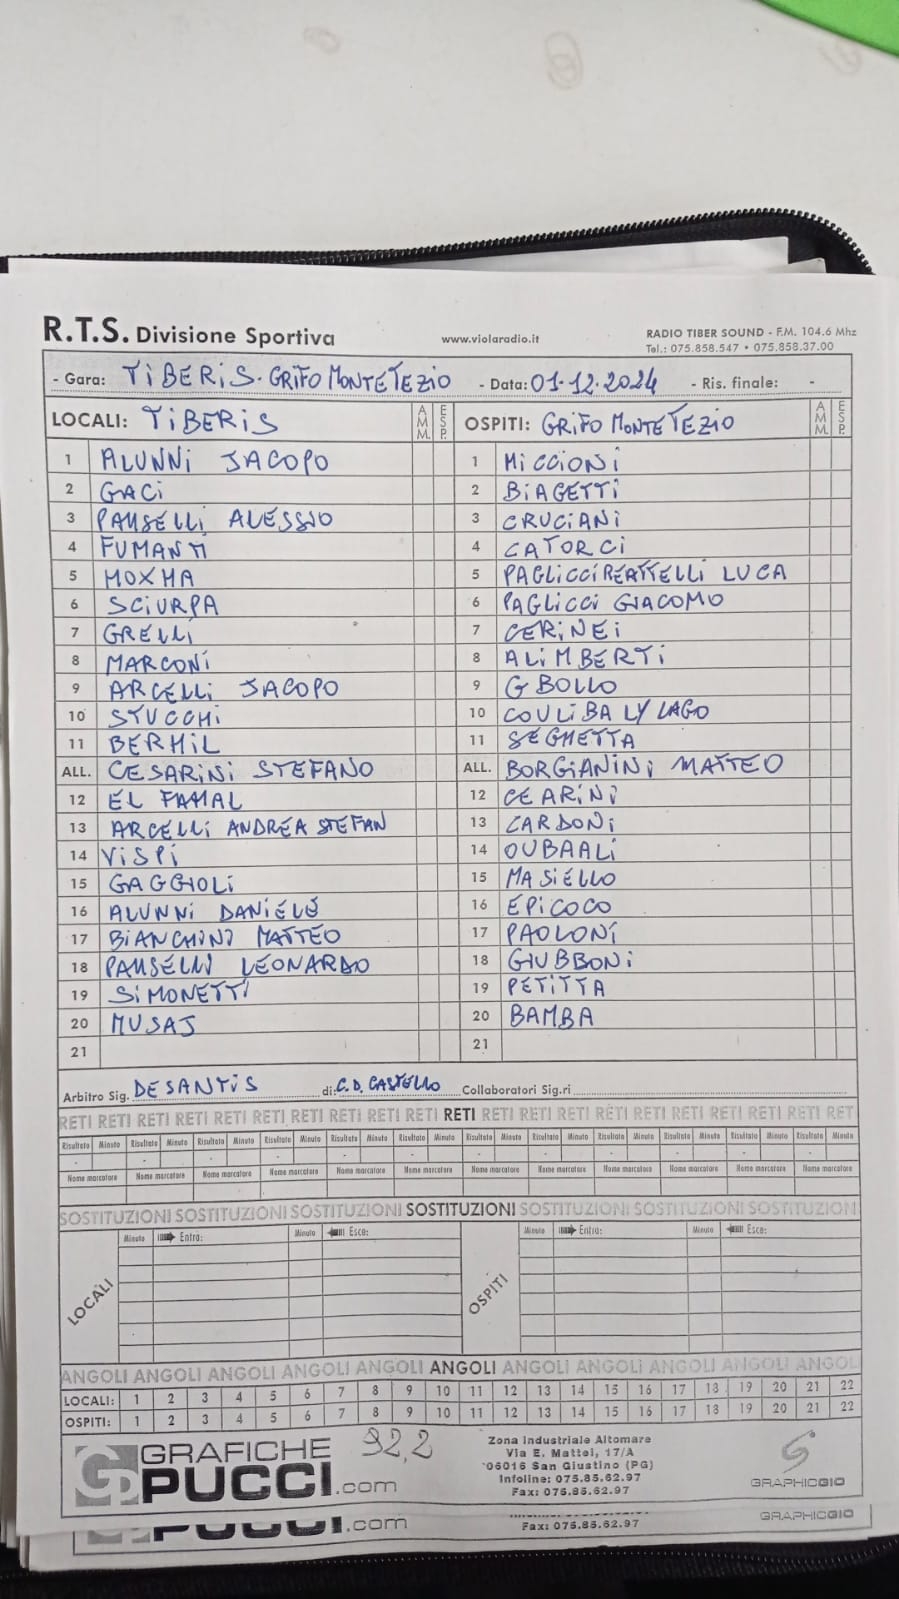 R.T.S. Divisione Sportiva www.violaradio.it RADIO TIBER SOUND - F.M. 104.6 Mhz
Tel.: 075.858.547 • 075.858.37.00
- Gara: TIBERIS - GRIFO MONTE TEZIO - Data: 01-12-2024 - Ris. finale: -
LOCALI: TIBERIS AMM. ESP. OSPITI: GRIFO MONTE TEZIO AMM. ESP.
1 ALUNNI JACOPO 1 MICCIONI
2 GACI 2 BIAGETTI
3 PAUSELLI ALESSIO 3 CRUCIANI
4 FUMANTI 4 CATORCI
5 HOXHA 5 PAGLICCIREATTELLI LUCA
6 SCIURPA 6 PAGLICCI GIACOMO
7 GRELLI 7 CERINEI
8 MARCONI 8 ALIMBERTI
9 ARCELLI JACOPO 9 GBOLLO
10 STUCCHI 10 COULIBALY LAGO
11 BERHIL 11 SEGHETTA
ALL. CESARINI STEFANO ALL. BORGIANINI MATTEO
12 EL FAMAL 12 CEARINI
13 ARCELLI ANDREA STEFAN 13 CARDONI
14 VISPI 14 OUBAALI
15 GAGGIOLI 15 MASIELLO
16 ALUNNI DANIELE 16 EPICOCO
17 BIANCHINI MATTEO 17 PAOLONI
18 PAUSELLI LEONARDO 18 GIUBBONI
19 SIMONETTI 19 PETITTA
20 MUSAJ 20 BAMBA
21 21
Arbitro Sig. DE SANTIS di: C.D. CASTELLO Collaboratori Sig.ri
RETI RETI RETI RETI RETI RETI RETI RETI RETI RETI RETI RETI RETI RETI RETI RETI RETI RETI RETI RETI RET
Risultato Minuto Risultato Minuto Risultato Minuto Risultato Minuto Risultato Minuto Risultato Minuto Risultato Minuto Risultato Minuto Risultato Minuto Risultato Minuto Risultato Minuto Risultato Minuto
Nome marcatore Nome marcatore Nome marcatore Nome marcatore Nome marcatore Nome marcatore Nome marcatore Nome marcatore Nome marcatore Nome marcatore Nome marcatore Nome marcatore
SOSTITUZIONI SOSTITUZIONI SOSTITUZIONI SOSTITUZIONI SOSTITUZIONI SOSTITUZIONI SOSTITUZIONI
Minuto Entra: Minuto Esce: Minuto Entra: Minuto Esce:
LOCALI OSPITI
ANGOLI ANGOLI ANGOLI ANGOLI ANGOLI ANGOLI ANGOLI ANGOLI ANGOLI ANGOLI ANGOLI
LOCALI: 1 2 3 4 5 6 7 8 9 10 11 12 13 14 15 16 17 18 19 20 21 22
OSPITI: 1 2 3 4 5 6 7 8 9 10 11 12 13 14 15 16 17 18 19 20 21 22
GRAFICHE
PUCCI.com
92,2
Zona Industriale Altomare
Via E. Mattei, 17/A
06016 San Giustino (PG)
Infoline: 075.85.62.97
Fax: 075.85.62.97
GRAPHICGIO
PUCCI.com
Fax: 075.85.62.97
GRAPHICGIO